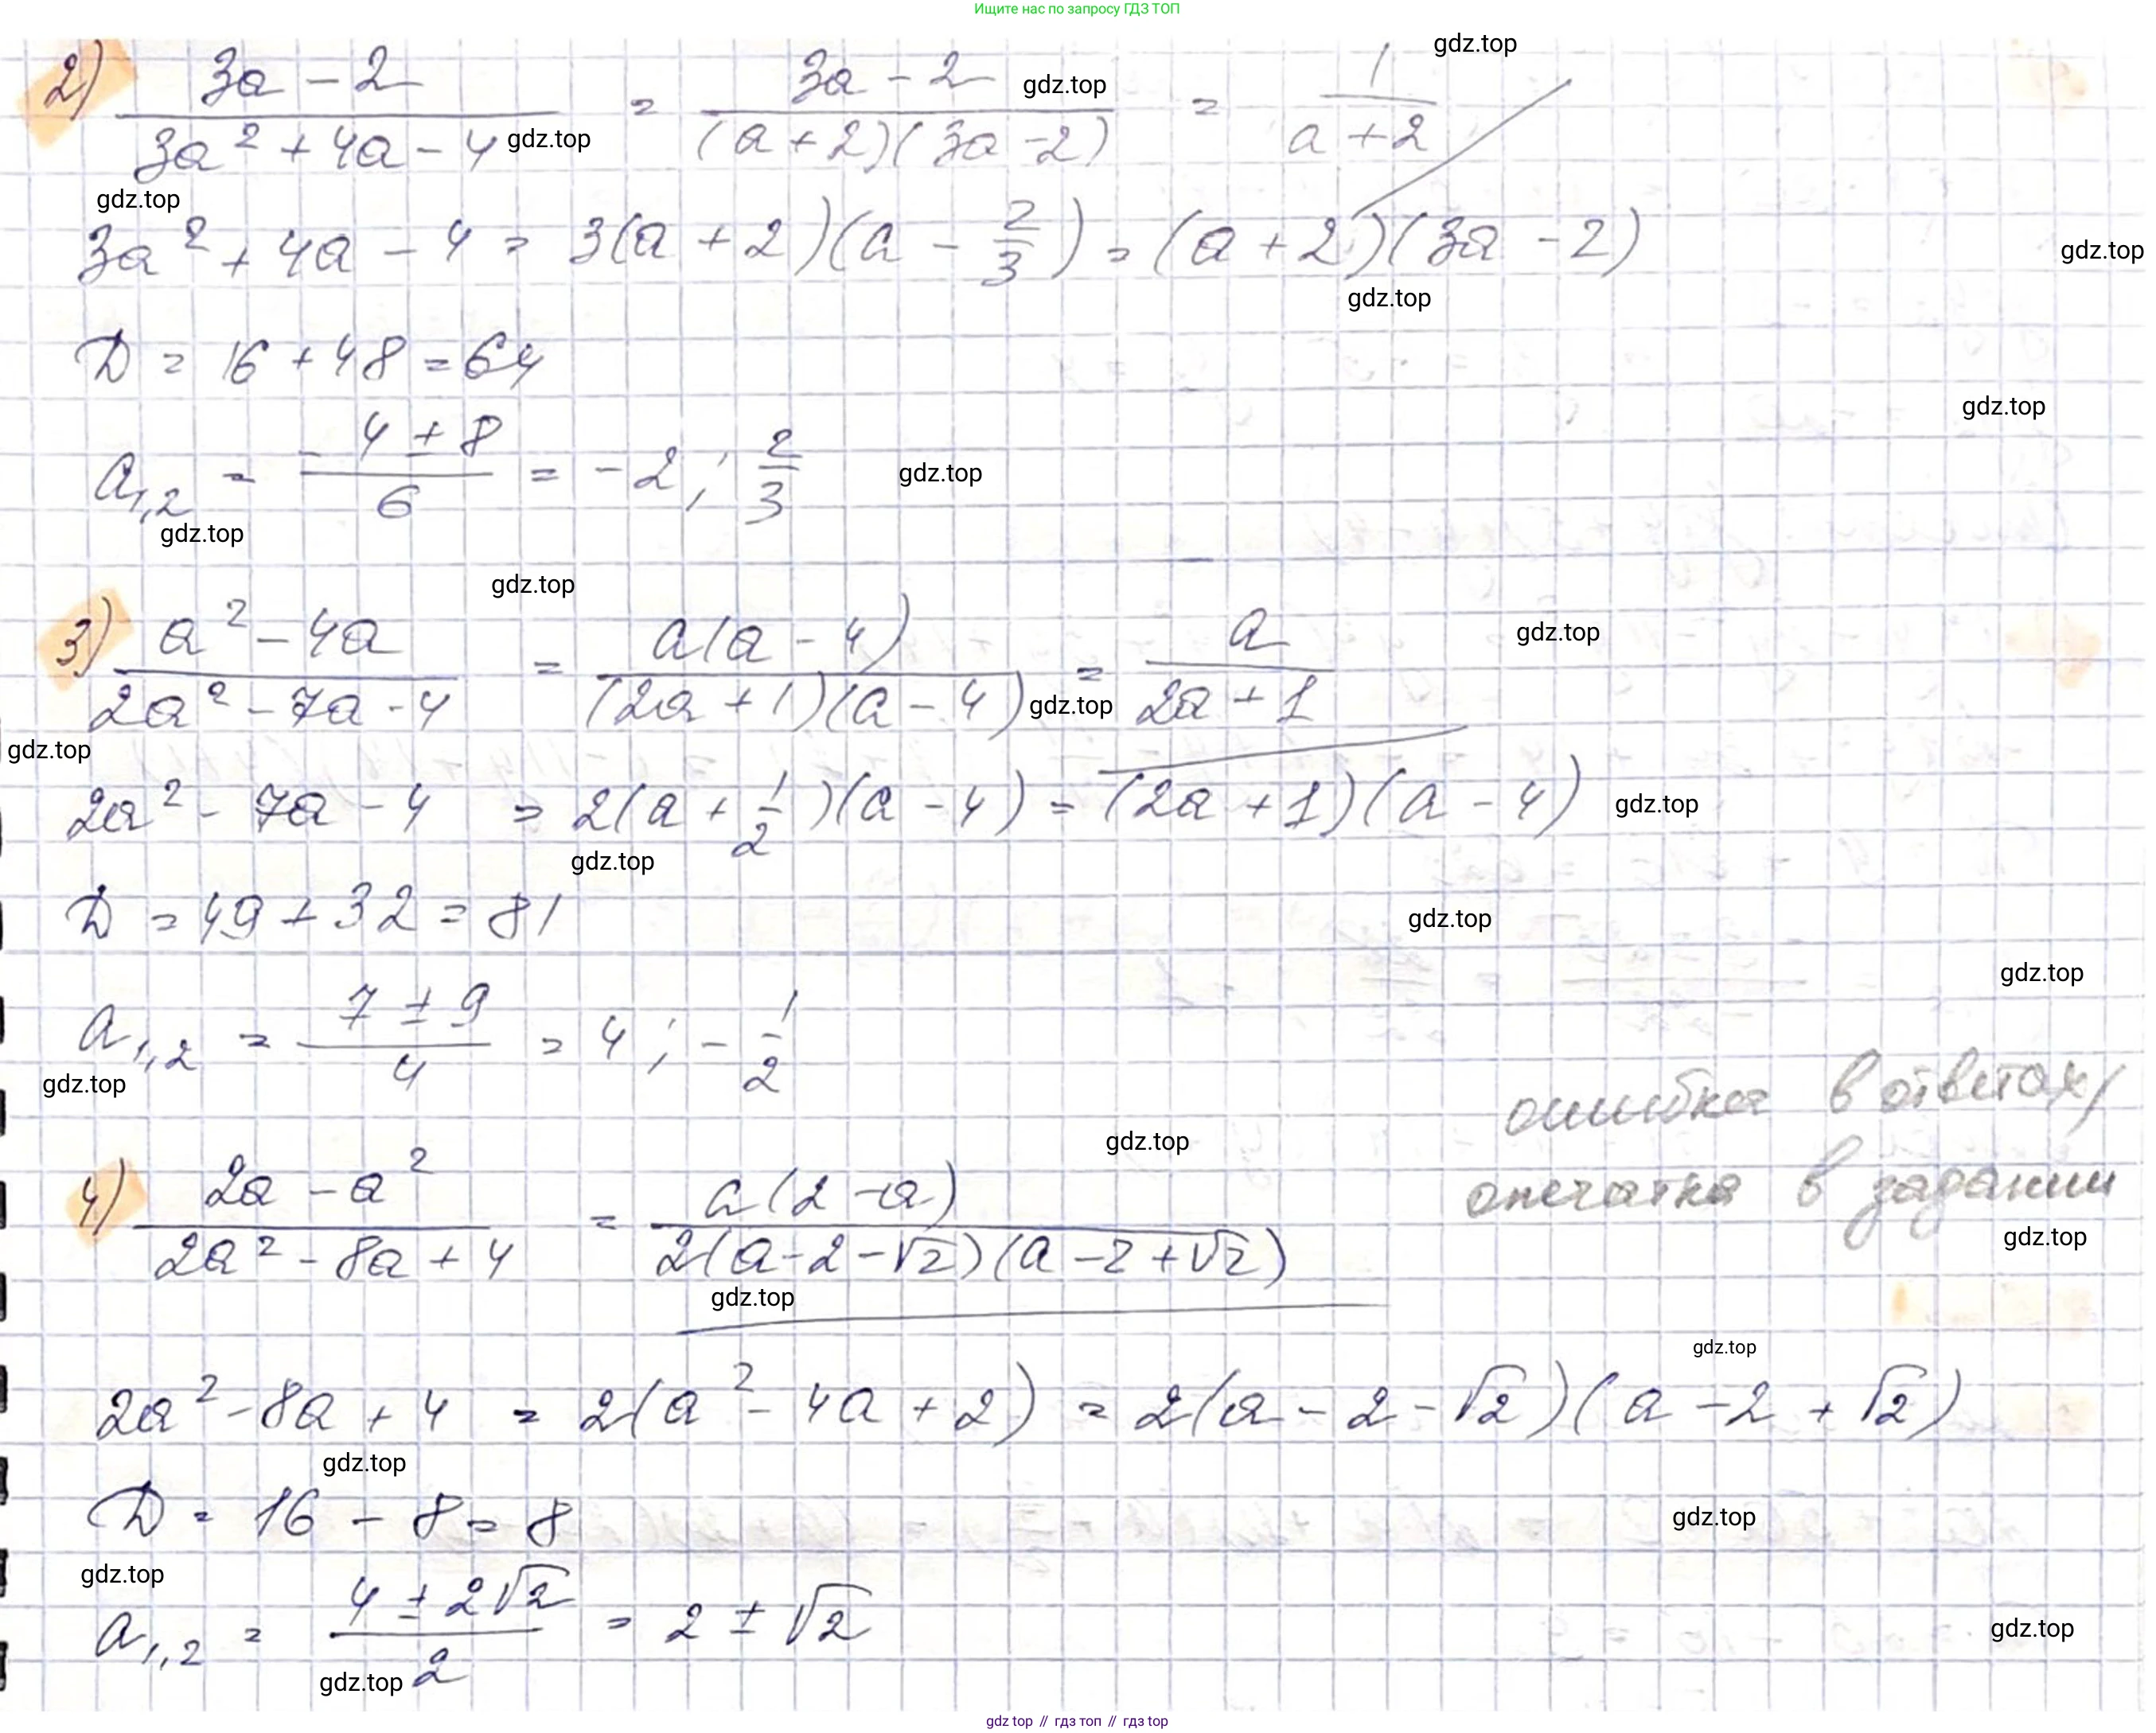 Ищите нас по запросу ГДЗ ТОП
gdz.top
2) (3a - 2)/(3a² + 4a - 4) = (3a - 2)/((a + 2)(3a - 2)) = 1/(a + 2)
gdz.top
gdz.top
gdz.top
3a² + 4a - 4 = 3(a + 2)(a - 2/3) = (a + 2)(3a - 2)
gdz.top
gdz.top
D = 16 + 48 = 64
gdz.top
a₁,₂ = (-4 ± 8)/6 = -2; 2/3
gdz.top
gdz.top
gdz.top
3) (a² - 4a)/(2a² - 7a - 4) = (a(a - 4))/((2a + 1)(a - 4)) = a/(2a + 1)
gdz.top
gdz.top
gdz.top
2a² - 7a - 4 = 2(a + 1/2)(a - 4) = (2a + 1)(a - 4)
gdz.top
gdz.top
D = 49 + 32 = 81
gdz.top
gdz.top
a₁,₂ = (7 ± 9)/4 = 4; -1/2
gdz.top
ошибка в ответах/
опечатка в задании
gdz.top
4) (2a - a²)/(2a² - 8a + 4) = (a(2 - a))/(2(a - 2 - √2)(a - 2 + √2))
gdz.top
gdz.top
gdz.top
2a² - 8a + 4 = 2(a² - 4a + 2) = 2(a - 2 - √2)(a - 2 + √2)
gdz.top
D = 16 - 8 = 8
gdz.top
gdz.top
a₁,₂ = (4 ± 2√2)/2 = 2 ± √2
gdz.top
gdz.top
gdz top // гдз топ // гдз top